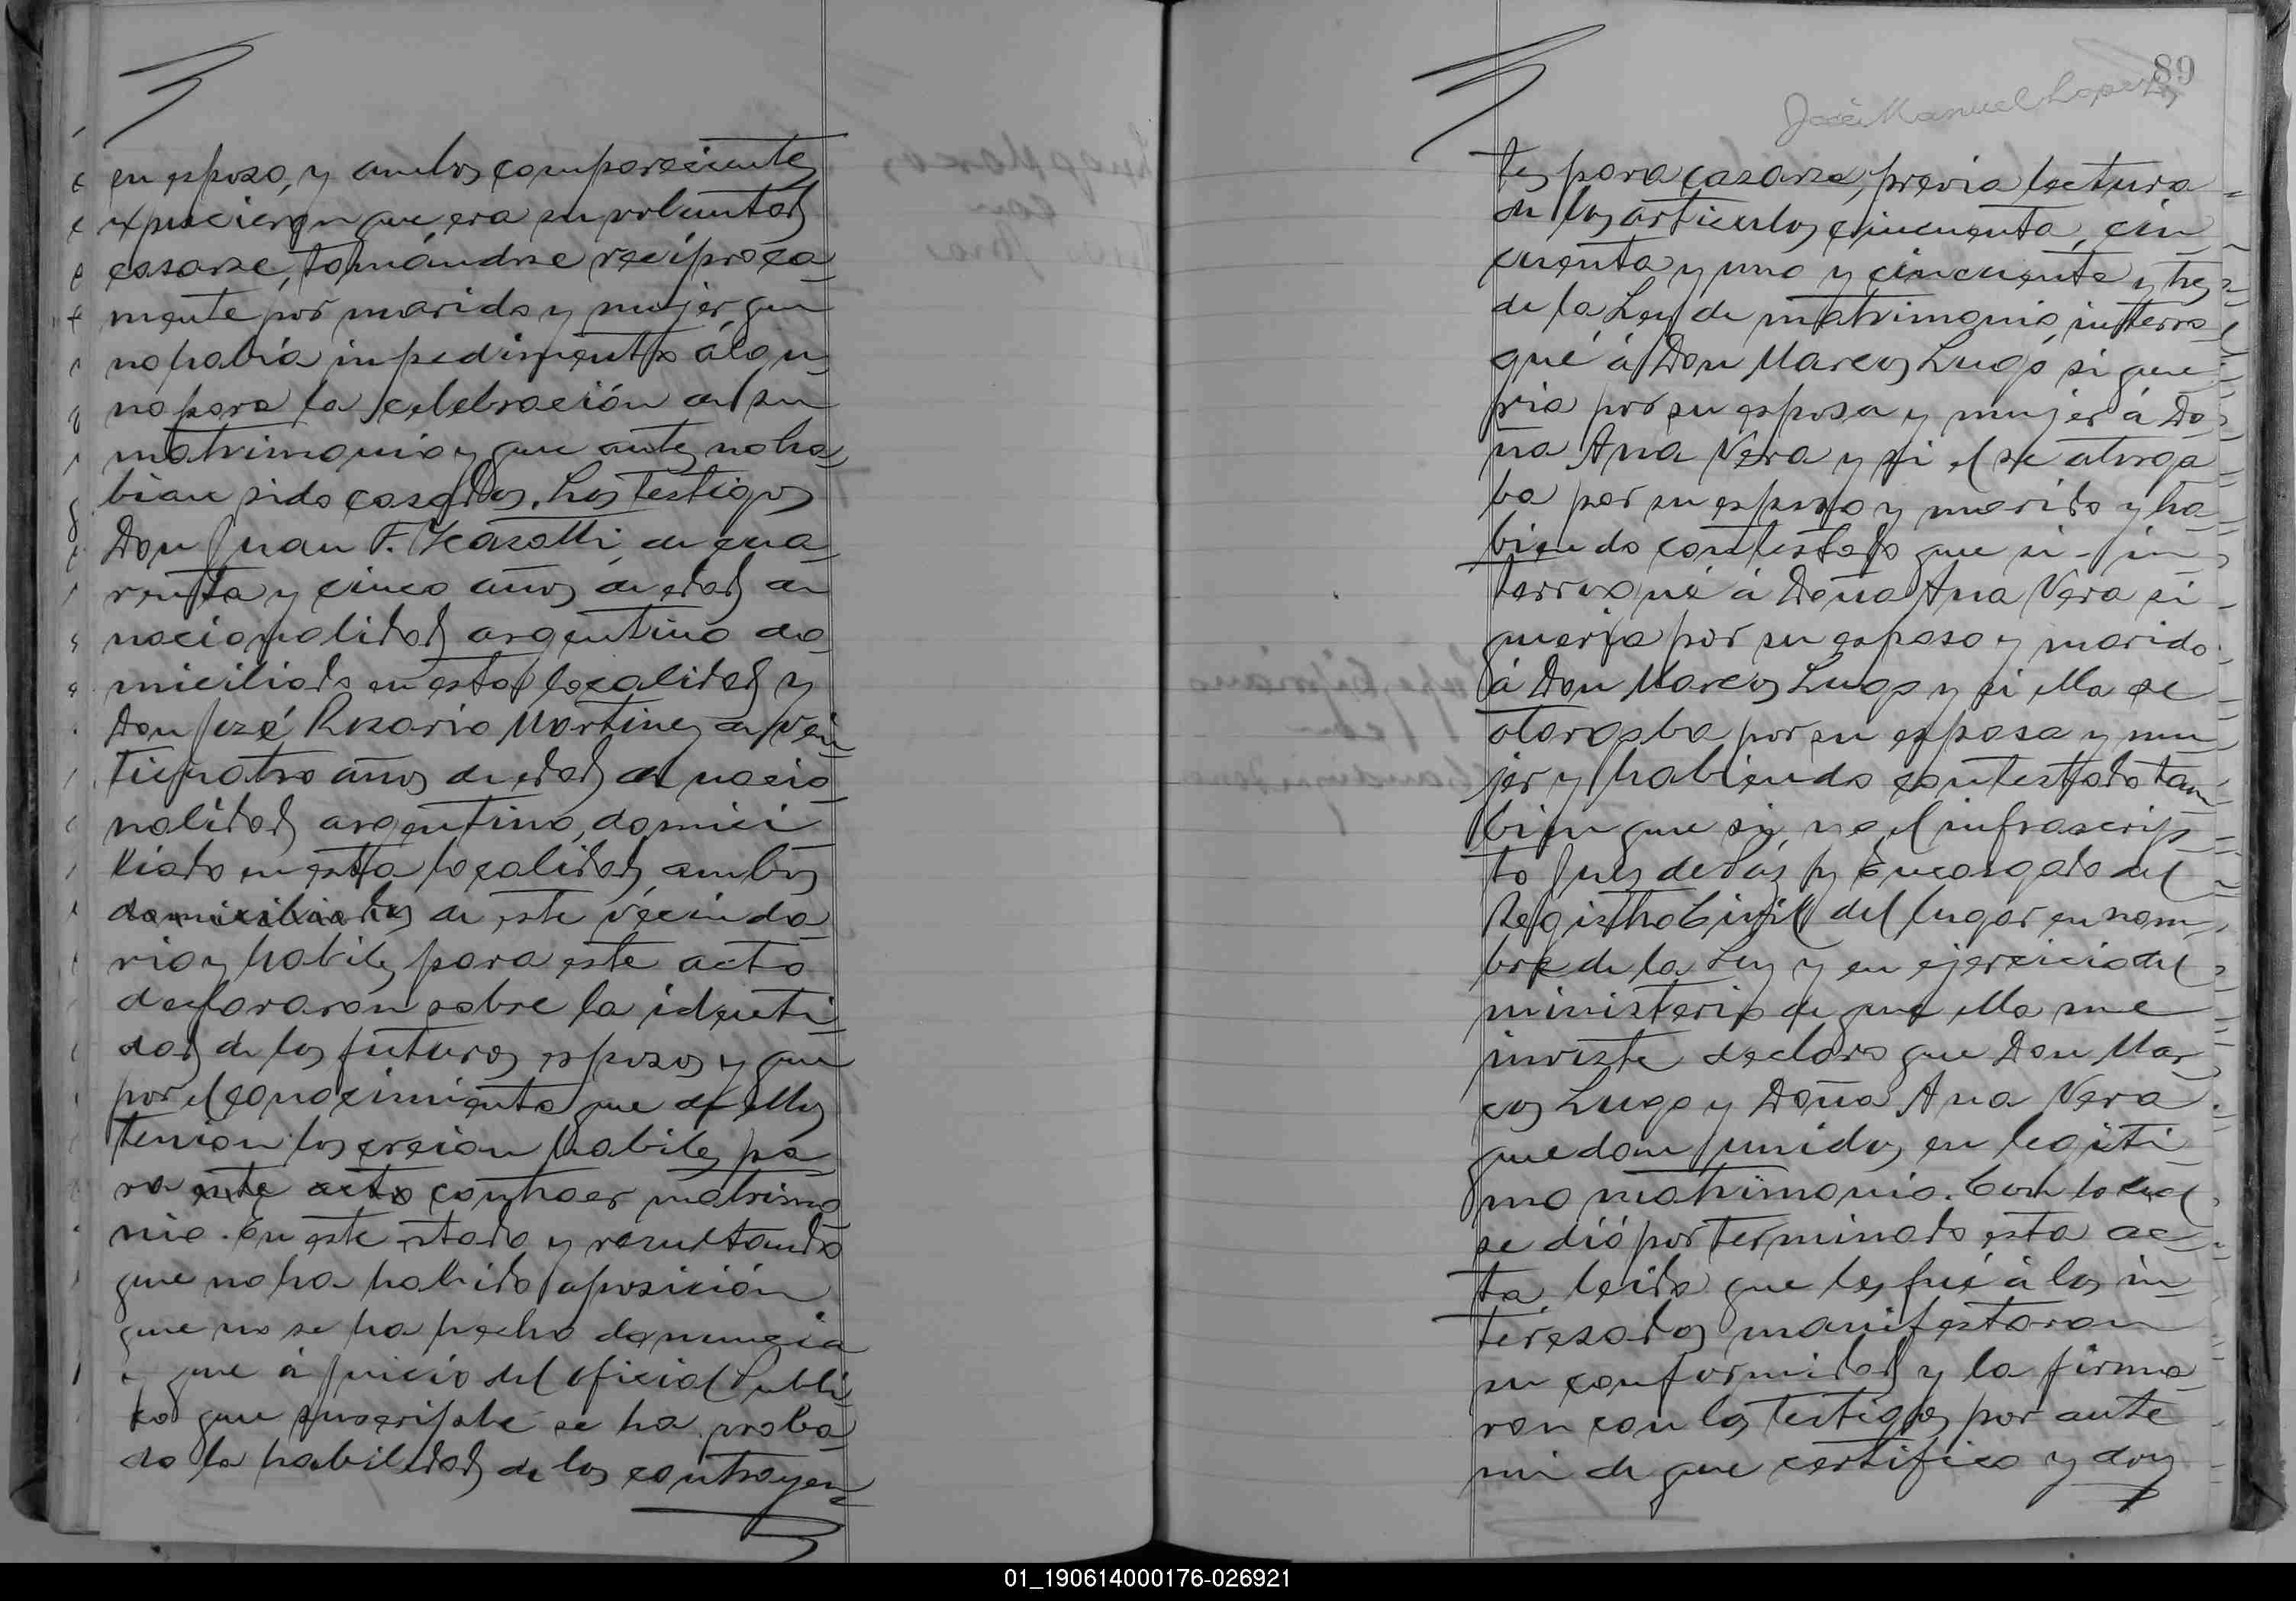 en esposo, y ambos comparecientes
expusieron que era su voluntad
casarse, tomándose recíproca-
mente por marido y mujer, que
no había impedimento algu-
no para la celebración de su
matrimonio y que antes no ha-
bian sido casados. Los testigos
Don Juan F. de cua-
renta y cinco años de edad de
nacionalidad argentino do-
miciliado en esta localidad y
Don José Rosario Martinez de vein-
ticuatro años de edad de nacio-
nalidad argentino, domici-
liado en esta localidad, ambos
domiciliados de este vecinda-
rio y habiles para este acto
declararon sobre la identi-
dad de los futuros esposos y que
por el conocimiento que de ellos
tenian los creian habiles pa-
ra este acto contraer matrimo-
nio. En este estado y resultando
que no ha habido oposición
que no se ha hecho denuncia
y que á juicio del oficial Públi-
co que suscribe se ha proba-
do la habilidad de los contrayen-
89
José Manuel Lopez
tes para casarse, previa lectura
de los articulos cincuenta, cin-
cuenta y uno y cincuenta y tres
de la Ley de matrimonio interro-
gué á Don Marcos Lugo si que-
ria por su esposa y mujer á Do-
ña Ana Vera y si el se otorga-
ba por su esposo y marido y ha-
biendo contestado que si - in-
terrogué á Doña Ana Vera si
queria por su esposo y marido
á Don Marcos Lugo y si ella se
otorgaba por su esposa y mu-
jer y habiendo contestado tam-
bien que si, yo el infrascrip-
to Juez de Paz y Encargado del
Registro Civil del lugar en nom-
bre de la Ley y en ejercicio del
ministerio de que ella me
inviste declaro que Don Mar-
cos Lugo y Doña Ana Vera
quedan unidos en legiti-
mo matrimonio. Con lo cual
se dió por terminado esta ac-
ta, leida que les fué á los in-
teresados manifestaron
su conformidad y la firma-
ron con los testigos por ante
mi de que certifico y doy
01_190614000176-026921